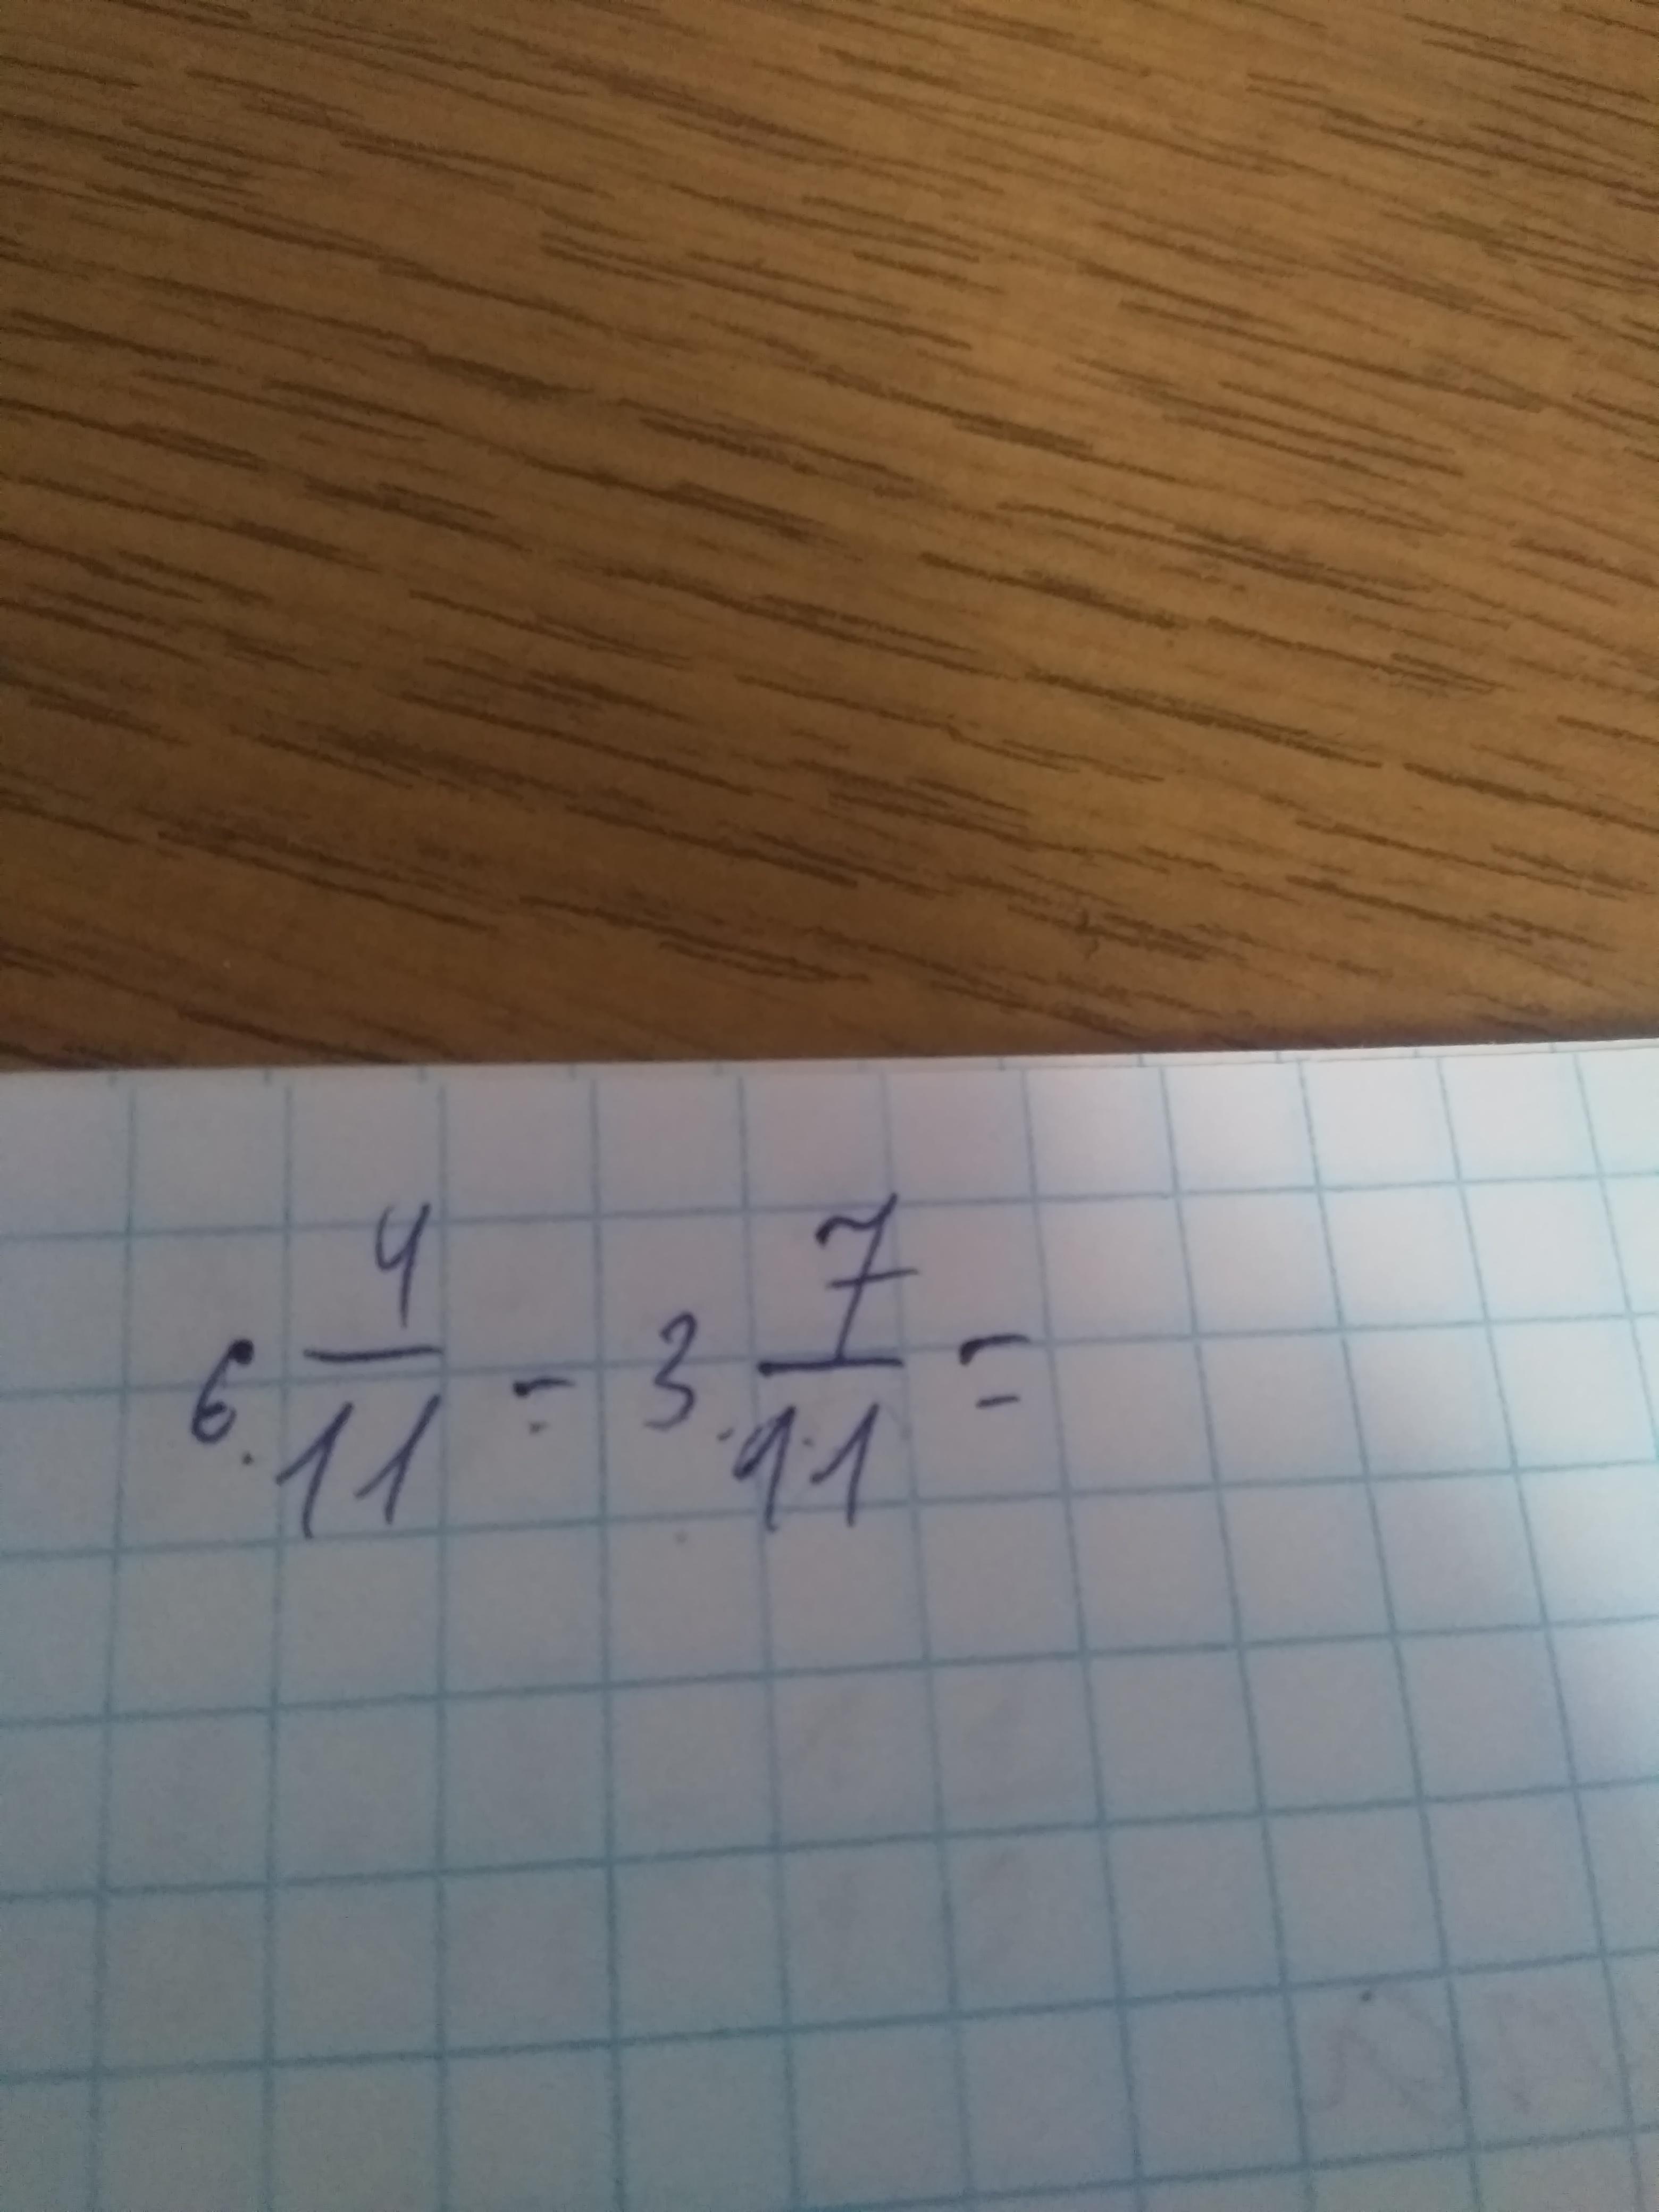 6 4/11 - 3 7/11 =